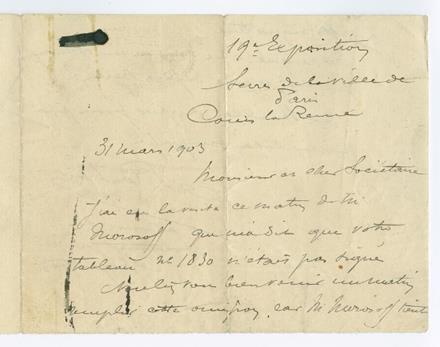 19e Exposition
Serres de la Ville de
Paris
Cours la Reine
31 mars 1903
Monsieur et cher Sociétaire
J'ai eu la visite ce matin de M
Morosoff qui m'a dit que votre
tableau No 1830 n'était pas signé
Voulez vous bien venir un matin
remplir cette omission, car M. Morosoff tient